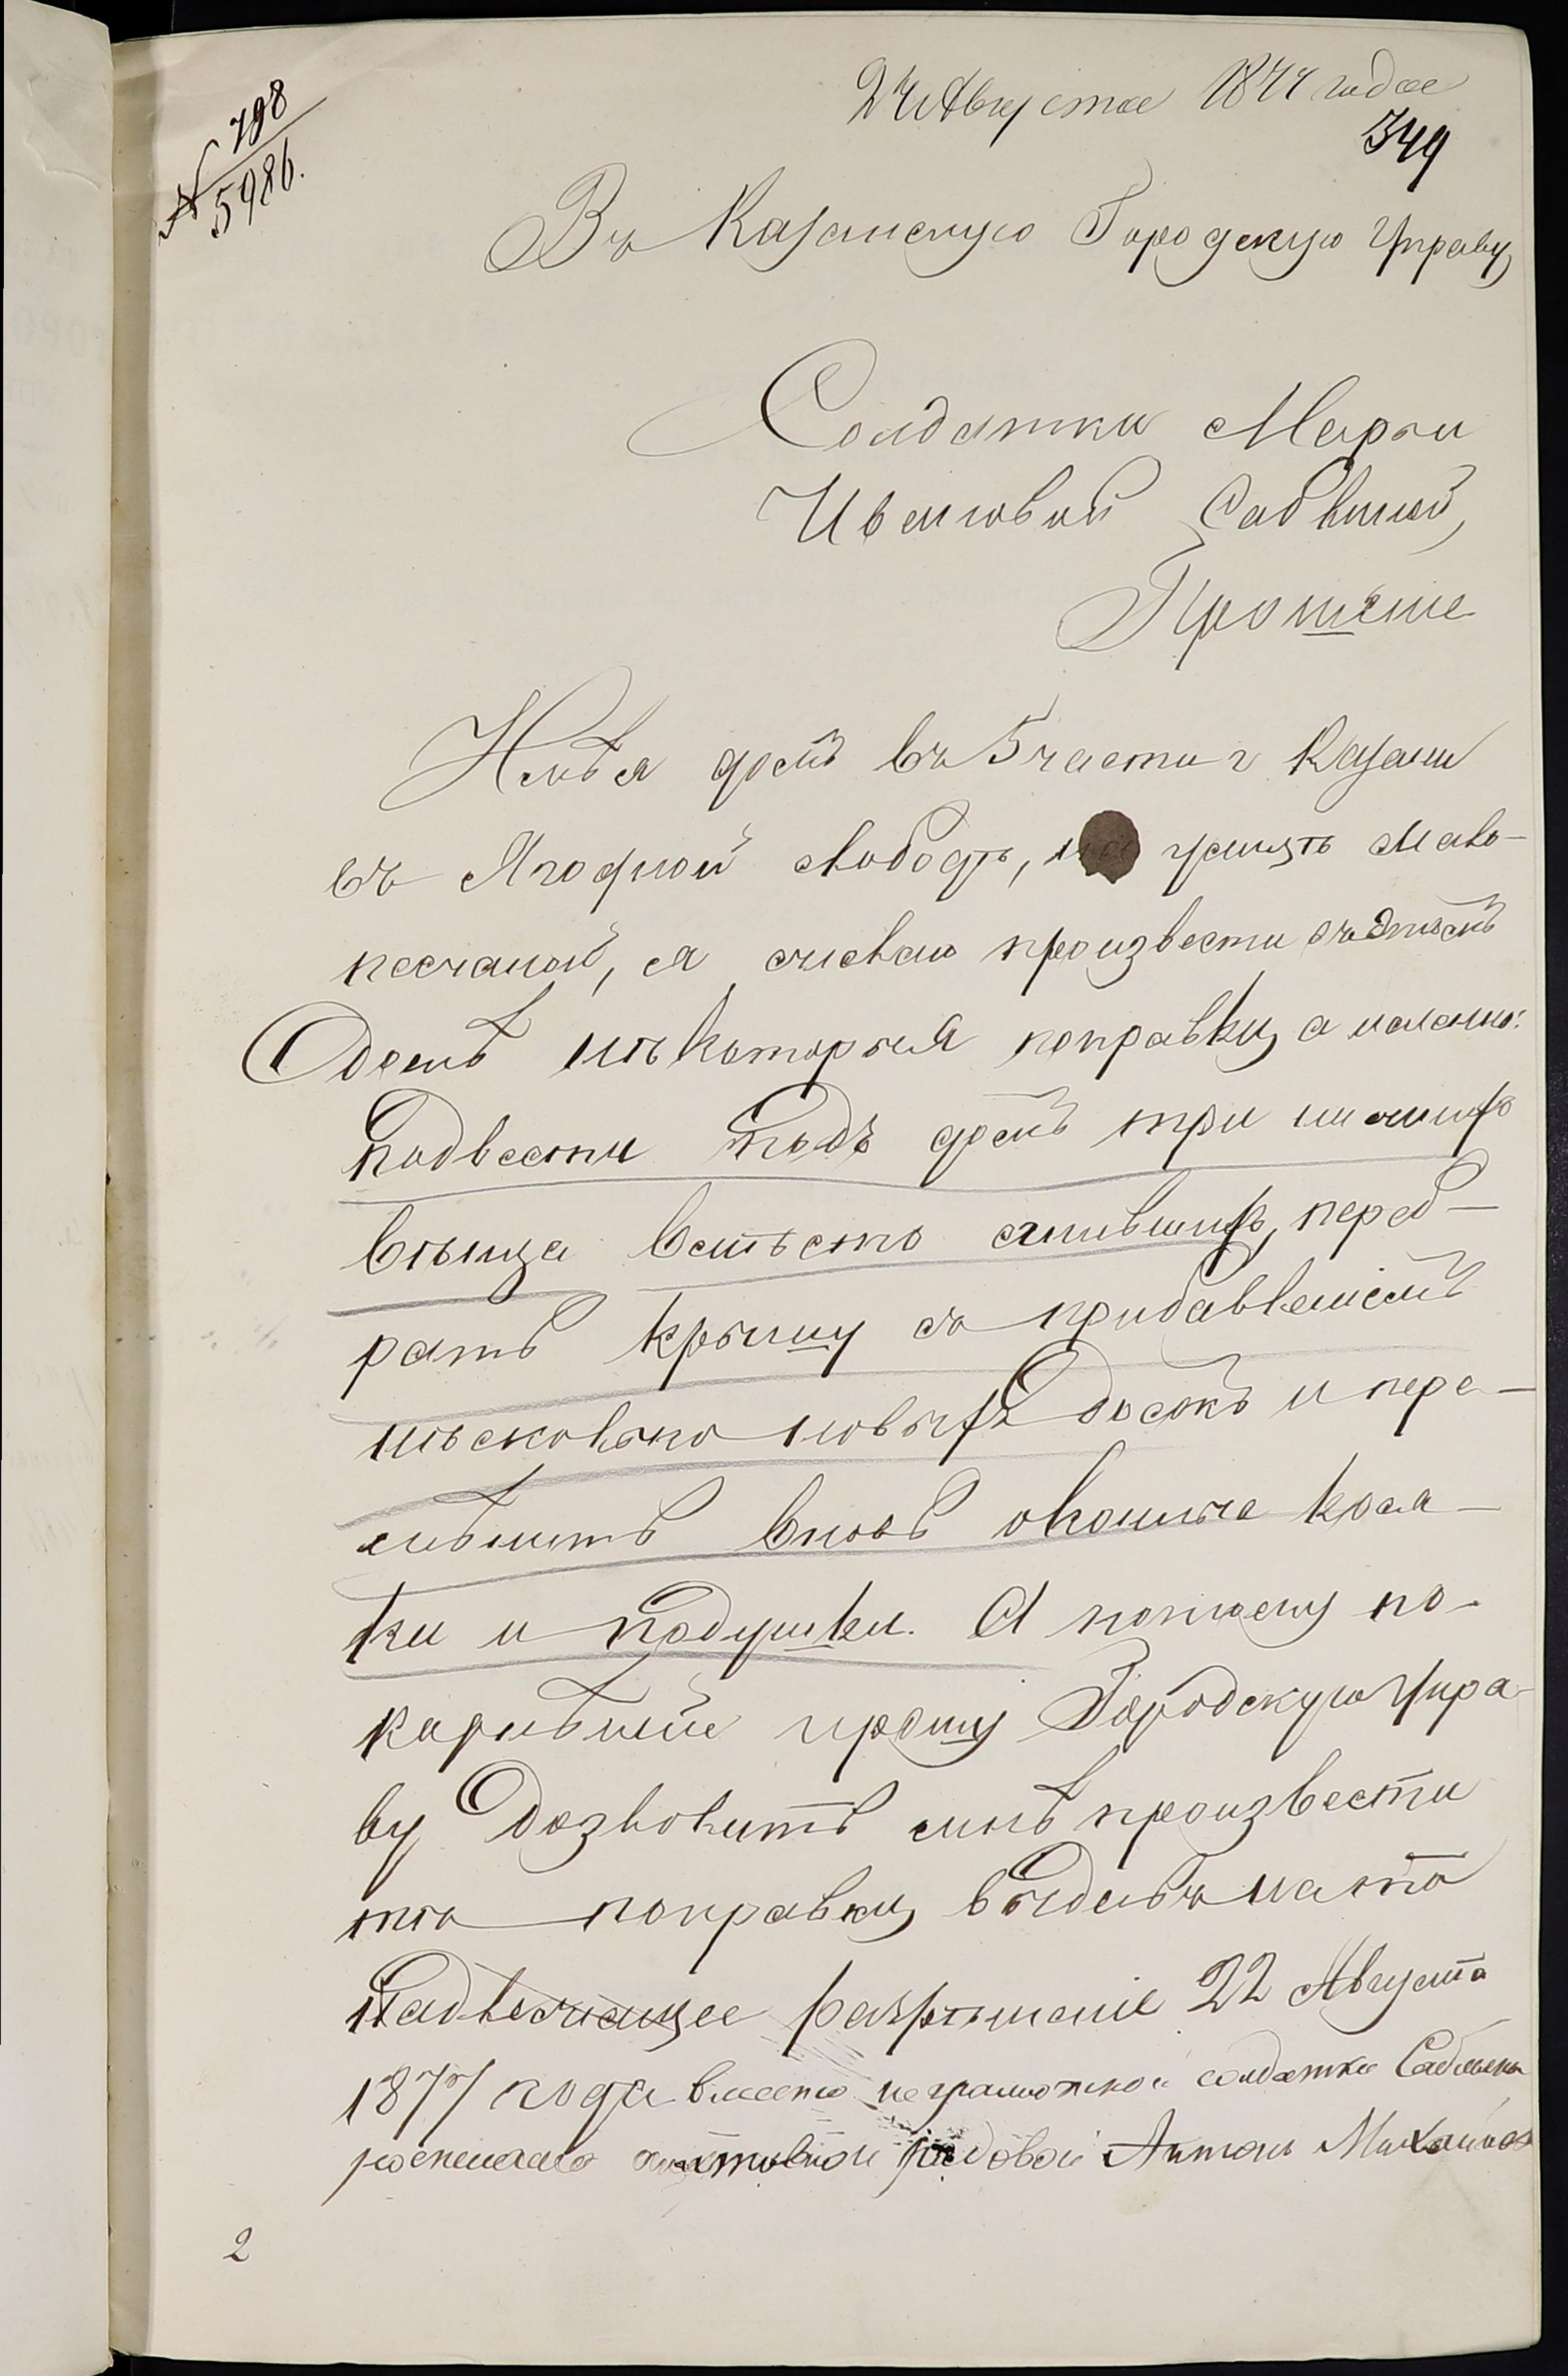 24 Августа 1877 года
349
№ 798
5986.
Въ Казанскую Городскую Управу
Солдатки Марьи
Ивановой Сабниной,
Прошеніе
Имѣя домъ въ 5 части г Казани
въ Ягодной слободѣ, на улицѣ Мало-
песчаной, я желаю произвести въ этомъ
домѣ нѣкоторыя поправки, а именно:
подвести подъ домъ три нижнихъ
вѣнца вместо сгнившихъ, переб-
рать крышу съ прибавленіемъ
нѣсколько новыхъ досокъ и пере-
мѣнить вновь оконные кося-
ки и подушки. А потому по-
корнѣйше прошу Городскую Упра-
ву дозволить мнѣ произвести
тѣ поправки, выдавъ на то
надлежащее разрѣшеніе 22 Августа
1877 года вместо неграмотной солдатки
росписался рядовой Антонъ Михайловъ
2